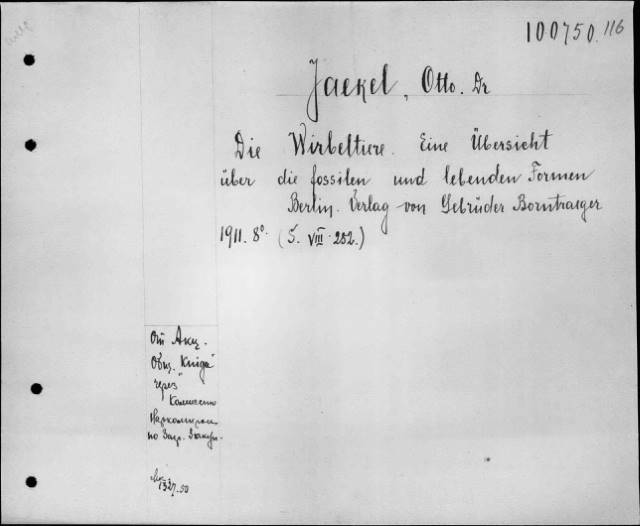 100750. 116
Jaekel, Otto. Dr
Die Wirbeltiere. Eine Übersicht
über die fossilen und lebenden Formen
Berlin. Verlag von Gebrüder Borntraeger
1911. 8°. (S. VIII. 252.)
От Акц.
Общ. "Книга"
через
Комиссию
Наркомпроса
по Загр. Закуп.